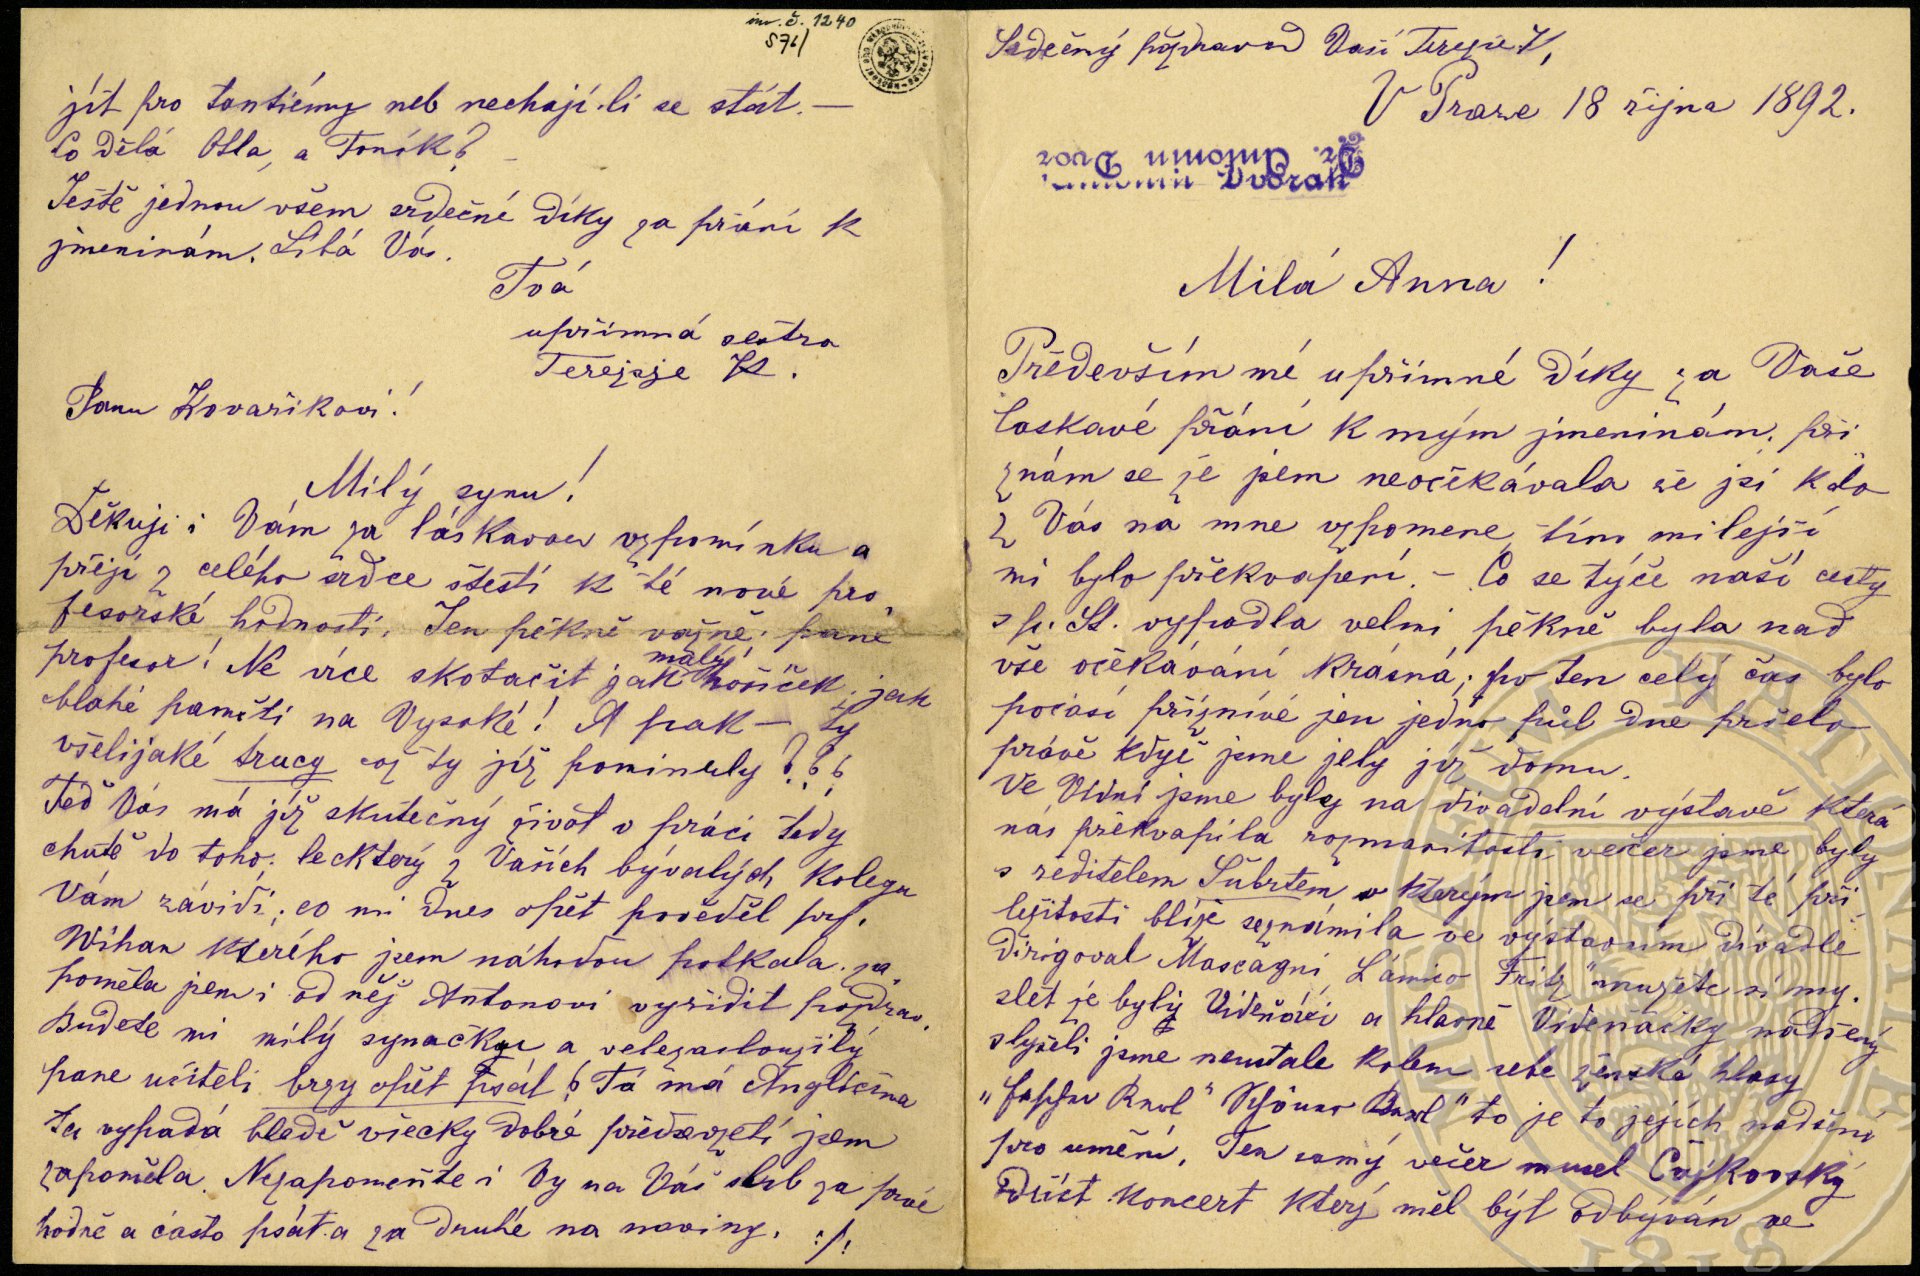 inv. č. 1240
S 76/
jít pro tantiémy neb nechají-li se stát. —
Co dělá Otla, a Toník? —
Ještě jednou všem srdečné díky za přání k
jmeninám. Líbá Vás.
Tvá
upřímná sestra
Terezie K.
Panu Kovaříkovi!
Milý synu!
Děkuji i Vám za láskavou vzpomínku a
přeji z celého srdce štestí k té nové pro-
fesořské hodnosti. Jen pěkně vážně, pane
profesor! Ne více skotačit jak malý hošíček, jak
blahé paměti na Vysoké! A pak — ty
všelijaké trucy což ty již pominuly???
Teď Vás má již skutečný život v práci tedy
chutě do toho; leckterý z Vašich bývalých kolegu
Vám závidí; co mi dnes opět pověděl prof.
Wihan kterého jsem náhodou potkala. za-
poměla jsem i od něj Antonovi vyřidit pozdrav.
Budete mi milý synačku a velezasloužilý
pane učiteli brzy opět psát? Ta má Angličina
ta vypadá bledě všecky dobré předsevzetí jsem
zapoměla. Nezapomeňte i Vy na Váš slib za prvé
hodně a často psát a za druhé na noviny. :/:
Srdečný pozdrav od Vaší Terezie K,
V Praze 18 října 1892.
Dr. Antonin Dvoř
Antonin Dvořak
Milá Anna!
Předevšim mé upřimné díky za Vaše
laskavé přání k mým jmeninám, při
znám se že jsem neočekávala že jsi kdo
z Vás na mne vzpomene, tím milejší
mi bylo překvapení. — Co se týče naší cesty
s p. St. vypadla velmi pěkně byla nad
vše očekávání krásná; po ten celý čas bylo
počasí příznivé jen jedno půl dne pršelo
právě když jsme jely již domu.
Ve Vídni jsme byly na divadelní výstavě která
nás překvapila rozmanitostí, večer jsme byly
s ředitelem Šubrtem s kterým jsem se při té pří-
ležitosti blíže seznámila ve výstavním divadle
dirigoval Mascagni L'amico Fritz" muzete si my-
slet že byly Vídeňáci a hlavně Videňačky nadšeny
slyšeli jsme neustale kolem sebe ženské hlasy
to je to jejich nadšení
pro umění. Ten samý večer musel Čajkovský
držet koncert který měl být odbýván ve
MUSEUM NATIONALE
1818